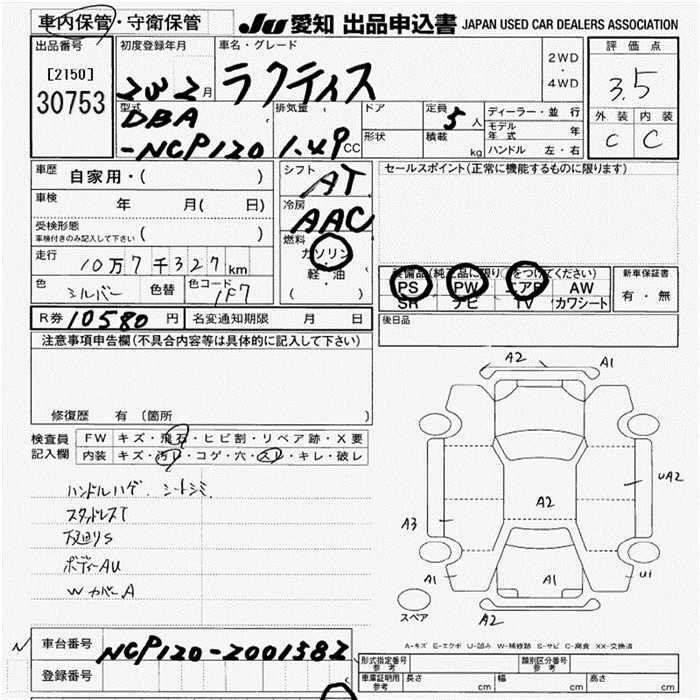 車内保管・守衛保管
JU 愛知 出品申込書 JAPAN USED CAR DEALERS ASSOCIATION
出品番号
[2150]
30753
初度登録年月
23 2月
車名・グレード
ラクティス
2WD
・
4WD
評価点
3.5
外装 内装
C C
型式
DBA
-NCP120
排気量
1.49CC
ドア
形状
定員
5人
積載
kg
ディーラー・並行
モデル年式 年
ハンドル 左・右
車歴 自家用・( )
車検 年 月( 日)
受検形態
車検付きのみ記入して下さい ( )
走行 10万7千327km
色 シルバー 色替 色コード 1F7
シフト AT
冷房 AAC
燃料
ガソリン
・
軽・油
( )
セールスポイント(正常に機能するものに限ります)
装備品(純正品に限り○をつけてください)
PS PW エアB AW
SR ナビ TV カワシート
新車保証書
有・無
後日品
R券 10580円 名変通知期限 月 日
注意事項申告欄(不具合内容等は具体的に記入して下さい)
修復歴 有(箇所 )
検査員記入欄
FW キズ・飛石・ヒビ割・リペア跡・X要
内装 キズ・汚レ・コゲ・穴・スレ・キレ・破レ
ハンドルハゲ. シートシミ
スタッドレスT
下廻りS
ボディーAU
WカバーA
A2
A1
UA2
A2
A3
A1
A1
U1
スペア
A2
A-キズ E-エクボ U-凹み W-補修跡 S-サビ C-腐食 XX-交換済
N
車台番号 NCP120-2001582
登録番号
形式指定番号
参考
類別区分番号
参考
車庫証明用
参考
長さ cm 幅 cm 高さ cm